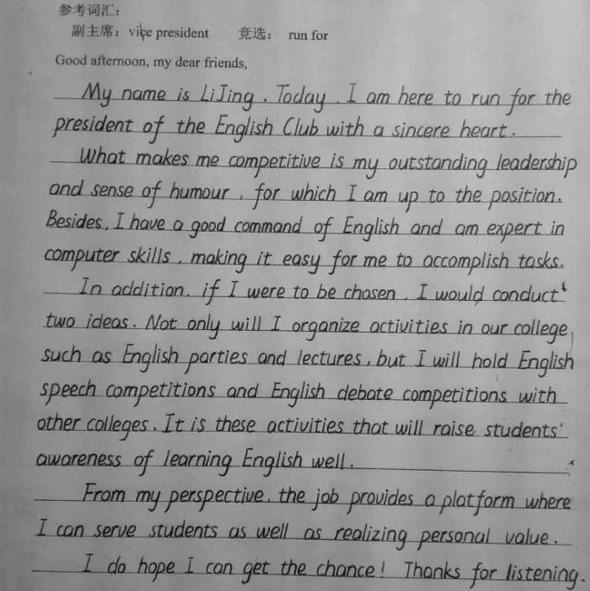 参考词汇：
副主席：vice president 竞选： run for
Good afternoon, my dear friends,
My name is LiJing. Today, I am here to run for the
president of the English Club with a sincere heart.
What makes me competitive is my outstanding leadership
and sense of humour, for which I am up to the position.
Besides, I have a good command of English and am expert in
computer skills, making it easy for me to accomplish tasks.
In addition, if I were to be chosen, I would conduct
two ideas. Not only will I organize activities in our college,
such as English parties and lectures, but I will hold English
speech competitions and English debate competitions with
other colleges. It is these activities that will raise students'
awareness of learning English well.
From my perspective, the job provides a platform where
I can serve students as well as realizing personal value.
I do hope I can get the chance! Thanks for listening.